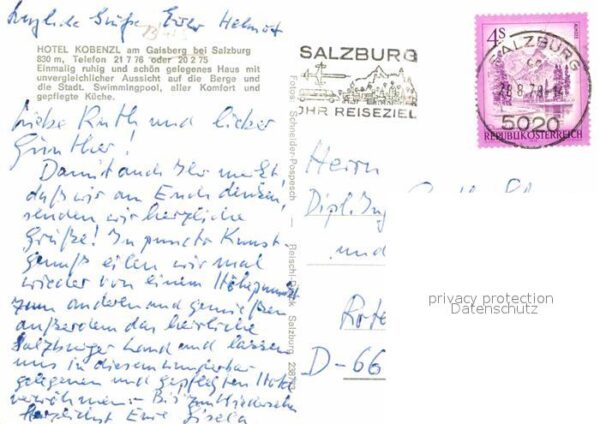 Herzliche Grüße, Euer Helmut
HOTEL KOBENZL am Gaisberg bei Salzburg
830 m, Telefon 21 7 76 oder 20 2 75
Einmalig ruhig und schön gelegenes Haus mit
unvergleichlicher Aussicht auf die Berge und
die Stadt. Swimmingpool, aller Komfort und
gepflegte Küche.
Liebe Ruth und lieber
Günther!
Damit auch Ihr merkt,
daß wir an Euch denken,
senden wir herzliche
Grüße! In puncto Kunst-
genuß eilen wir mal
wieder von einem Höhepunkt
zum anderen und genießen
außerdem das herrliche
Salzburger Land und lassen
uns in diesem wunderbar
gelegenen und gepflegten Hotel
verwöhnen. – Bis zum Wiedersehen
Herzlichst Eure Gisela
Fotos: Schneider-Pospesch — Reischl-Druck, Salzburg
SALZBURG
IHR REISEZIEL
4S
REPUBLIK ÖSTERREICH
SALZBURG
5020
Herrn
Dipl. Ing
und
Rote
D-66
privacy protection
Datenschutz